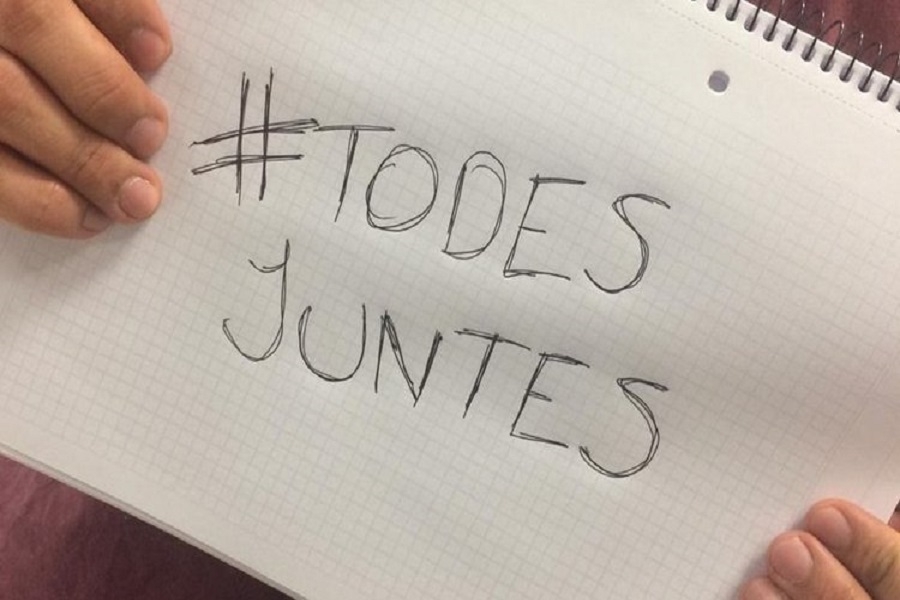 #TODES
JUNTES